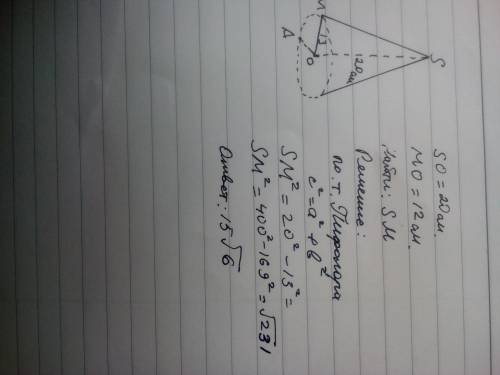 M
A
13
O
20см
S
SO = 20см.
MO = 12см.
Найти: SM
Решение:
по т. Пифагора
c² = a² + b²
SM² = 20² - 13² =
SM² = 400² - 169² = √231
Ответ: 15√6